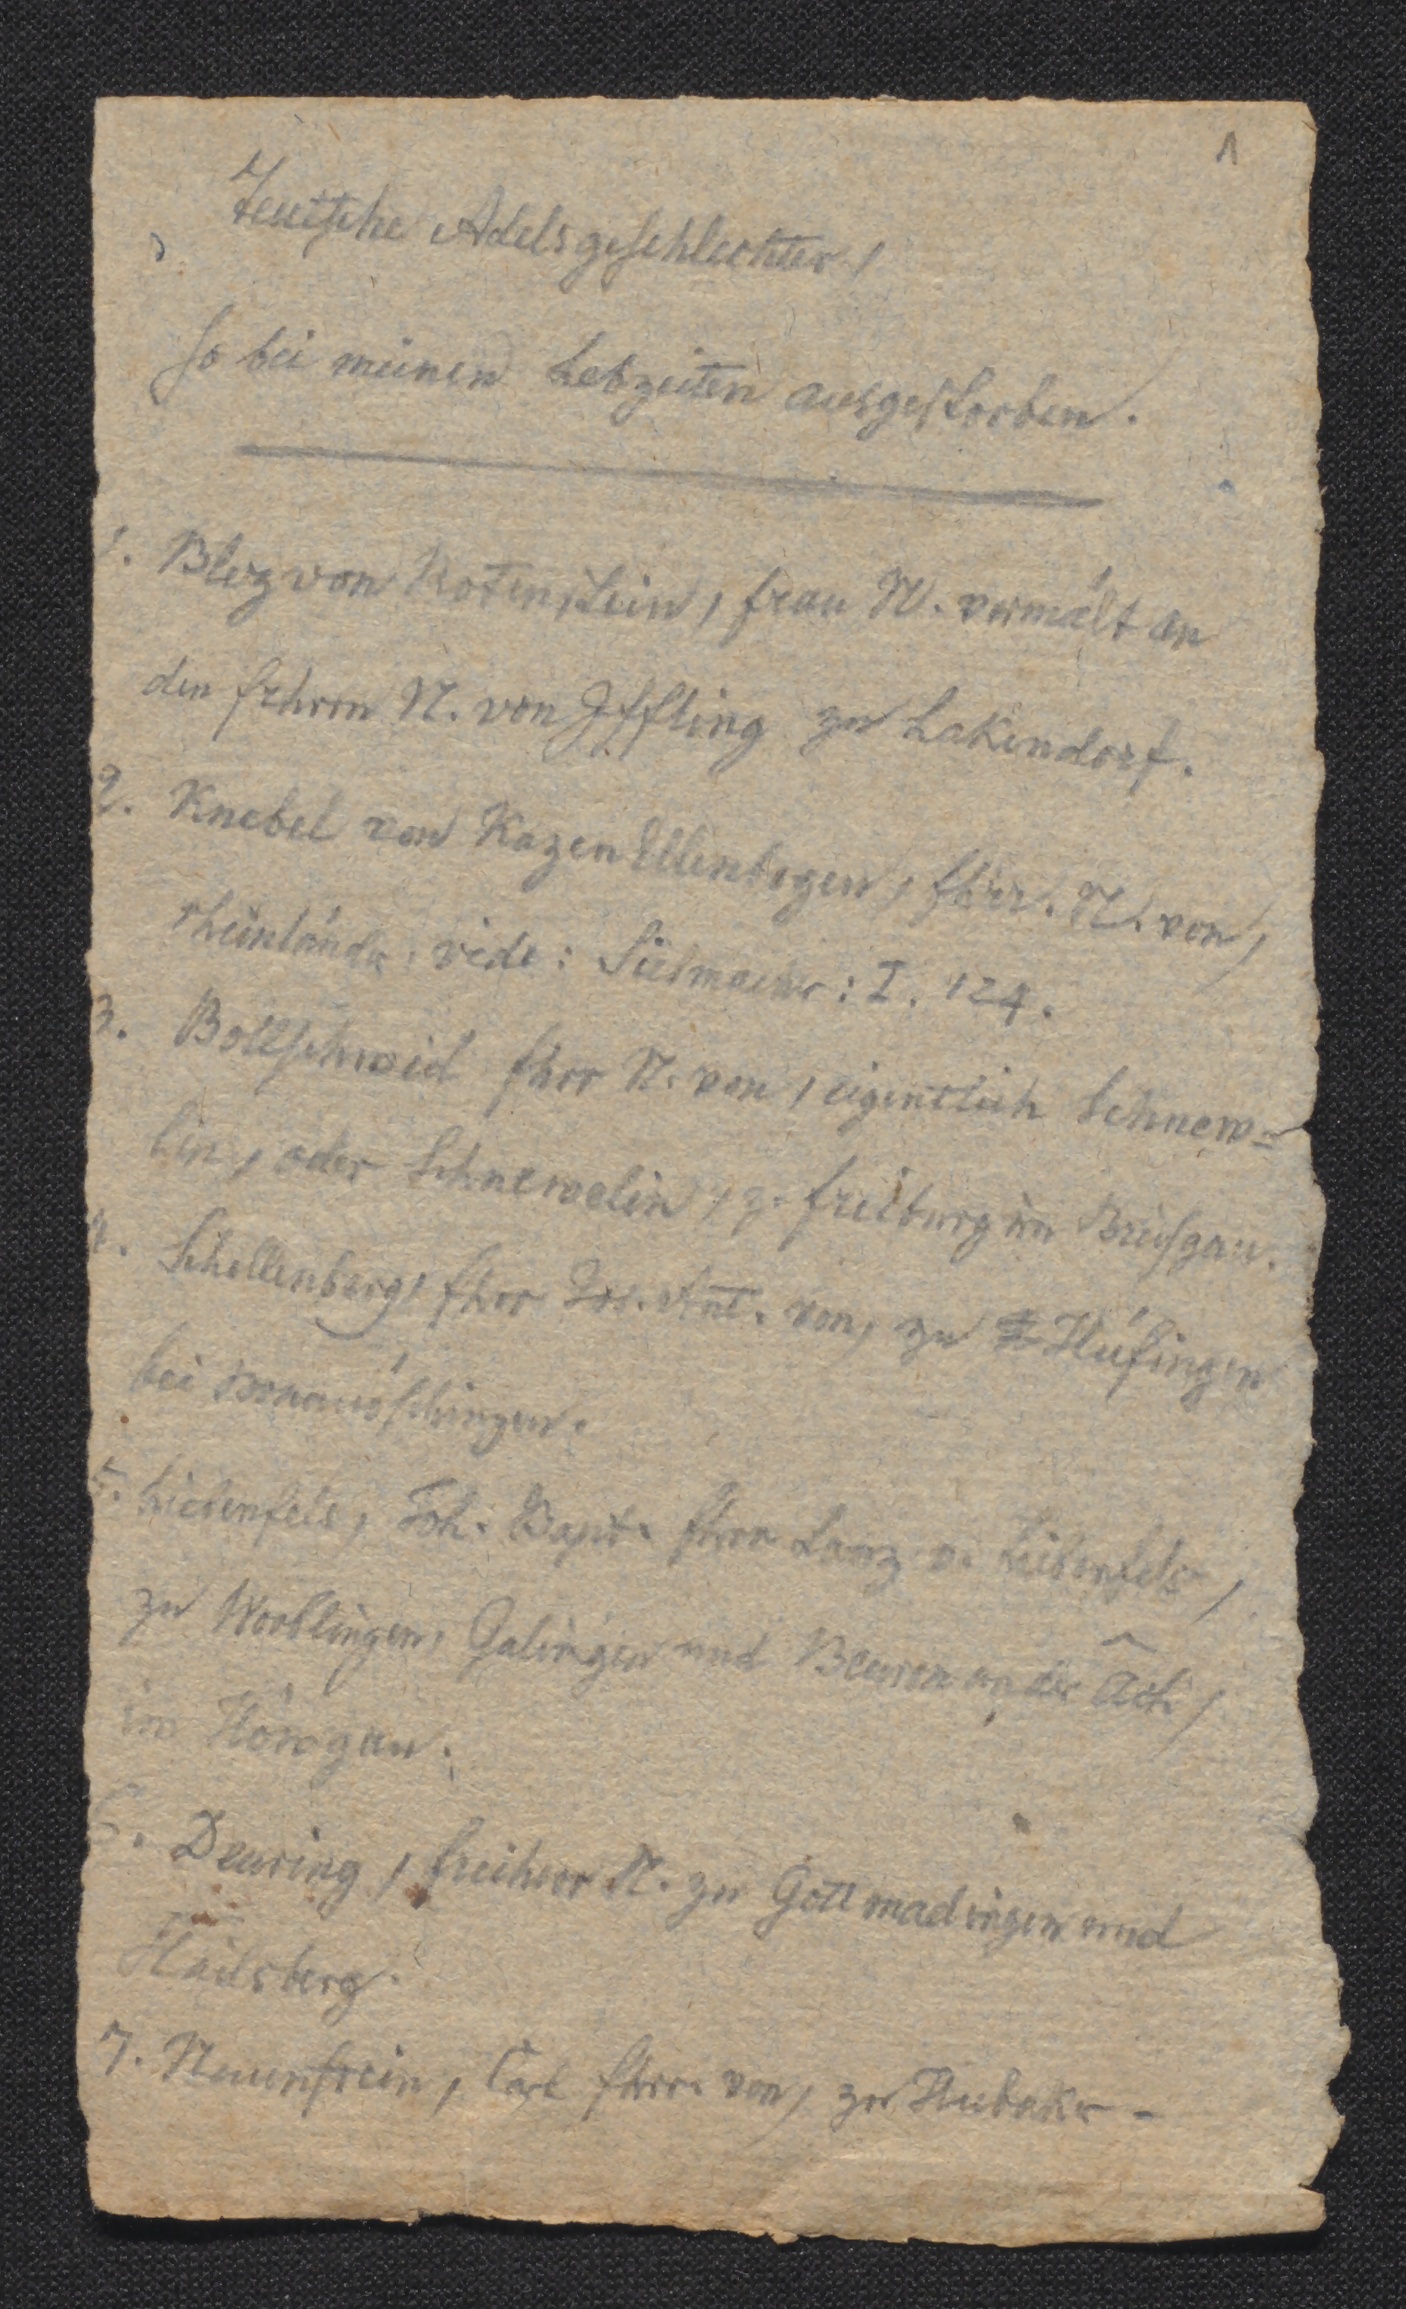 1
Teutsche Adelsgeschlechter,
so bei meinen Lebzeiten ausgestorben.
1. Blez von Rotenstein, frau N. vermält an
den frhrrn N. von Jffling zu Lakendorf.
2. Knebel von KazenEllenbogen, fhrr. N. von,
rheinländer. vide: Siebmacher: I. 124.
3. Bollschweid fhrr N. von, eigentlich Schnew=
lin, oder Schnewelin, z. freiburg im Breisgau.
4. Schellenberg, fhrr Jos. Ant. von, zu Hüfingen
bei Donauöschingen.
5. Liebenfels, Joh. Bapt. fhrr Lanz v. Liebenfels,
zu Worblingen, Gailingen und Beuren an der Ach,
im Höwgau.
6. Deuring, freiherr N. zu Gottmadingen und
Hailsberg.
7. Neuenstein, Carl fhrr. von, zu Hubaker -